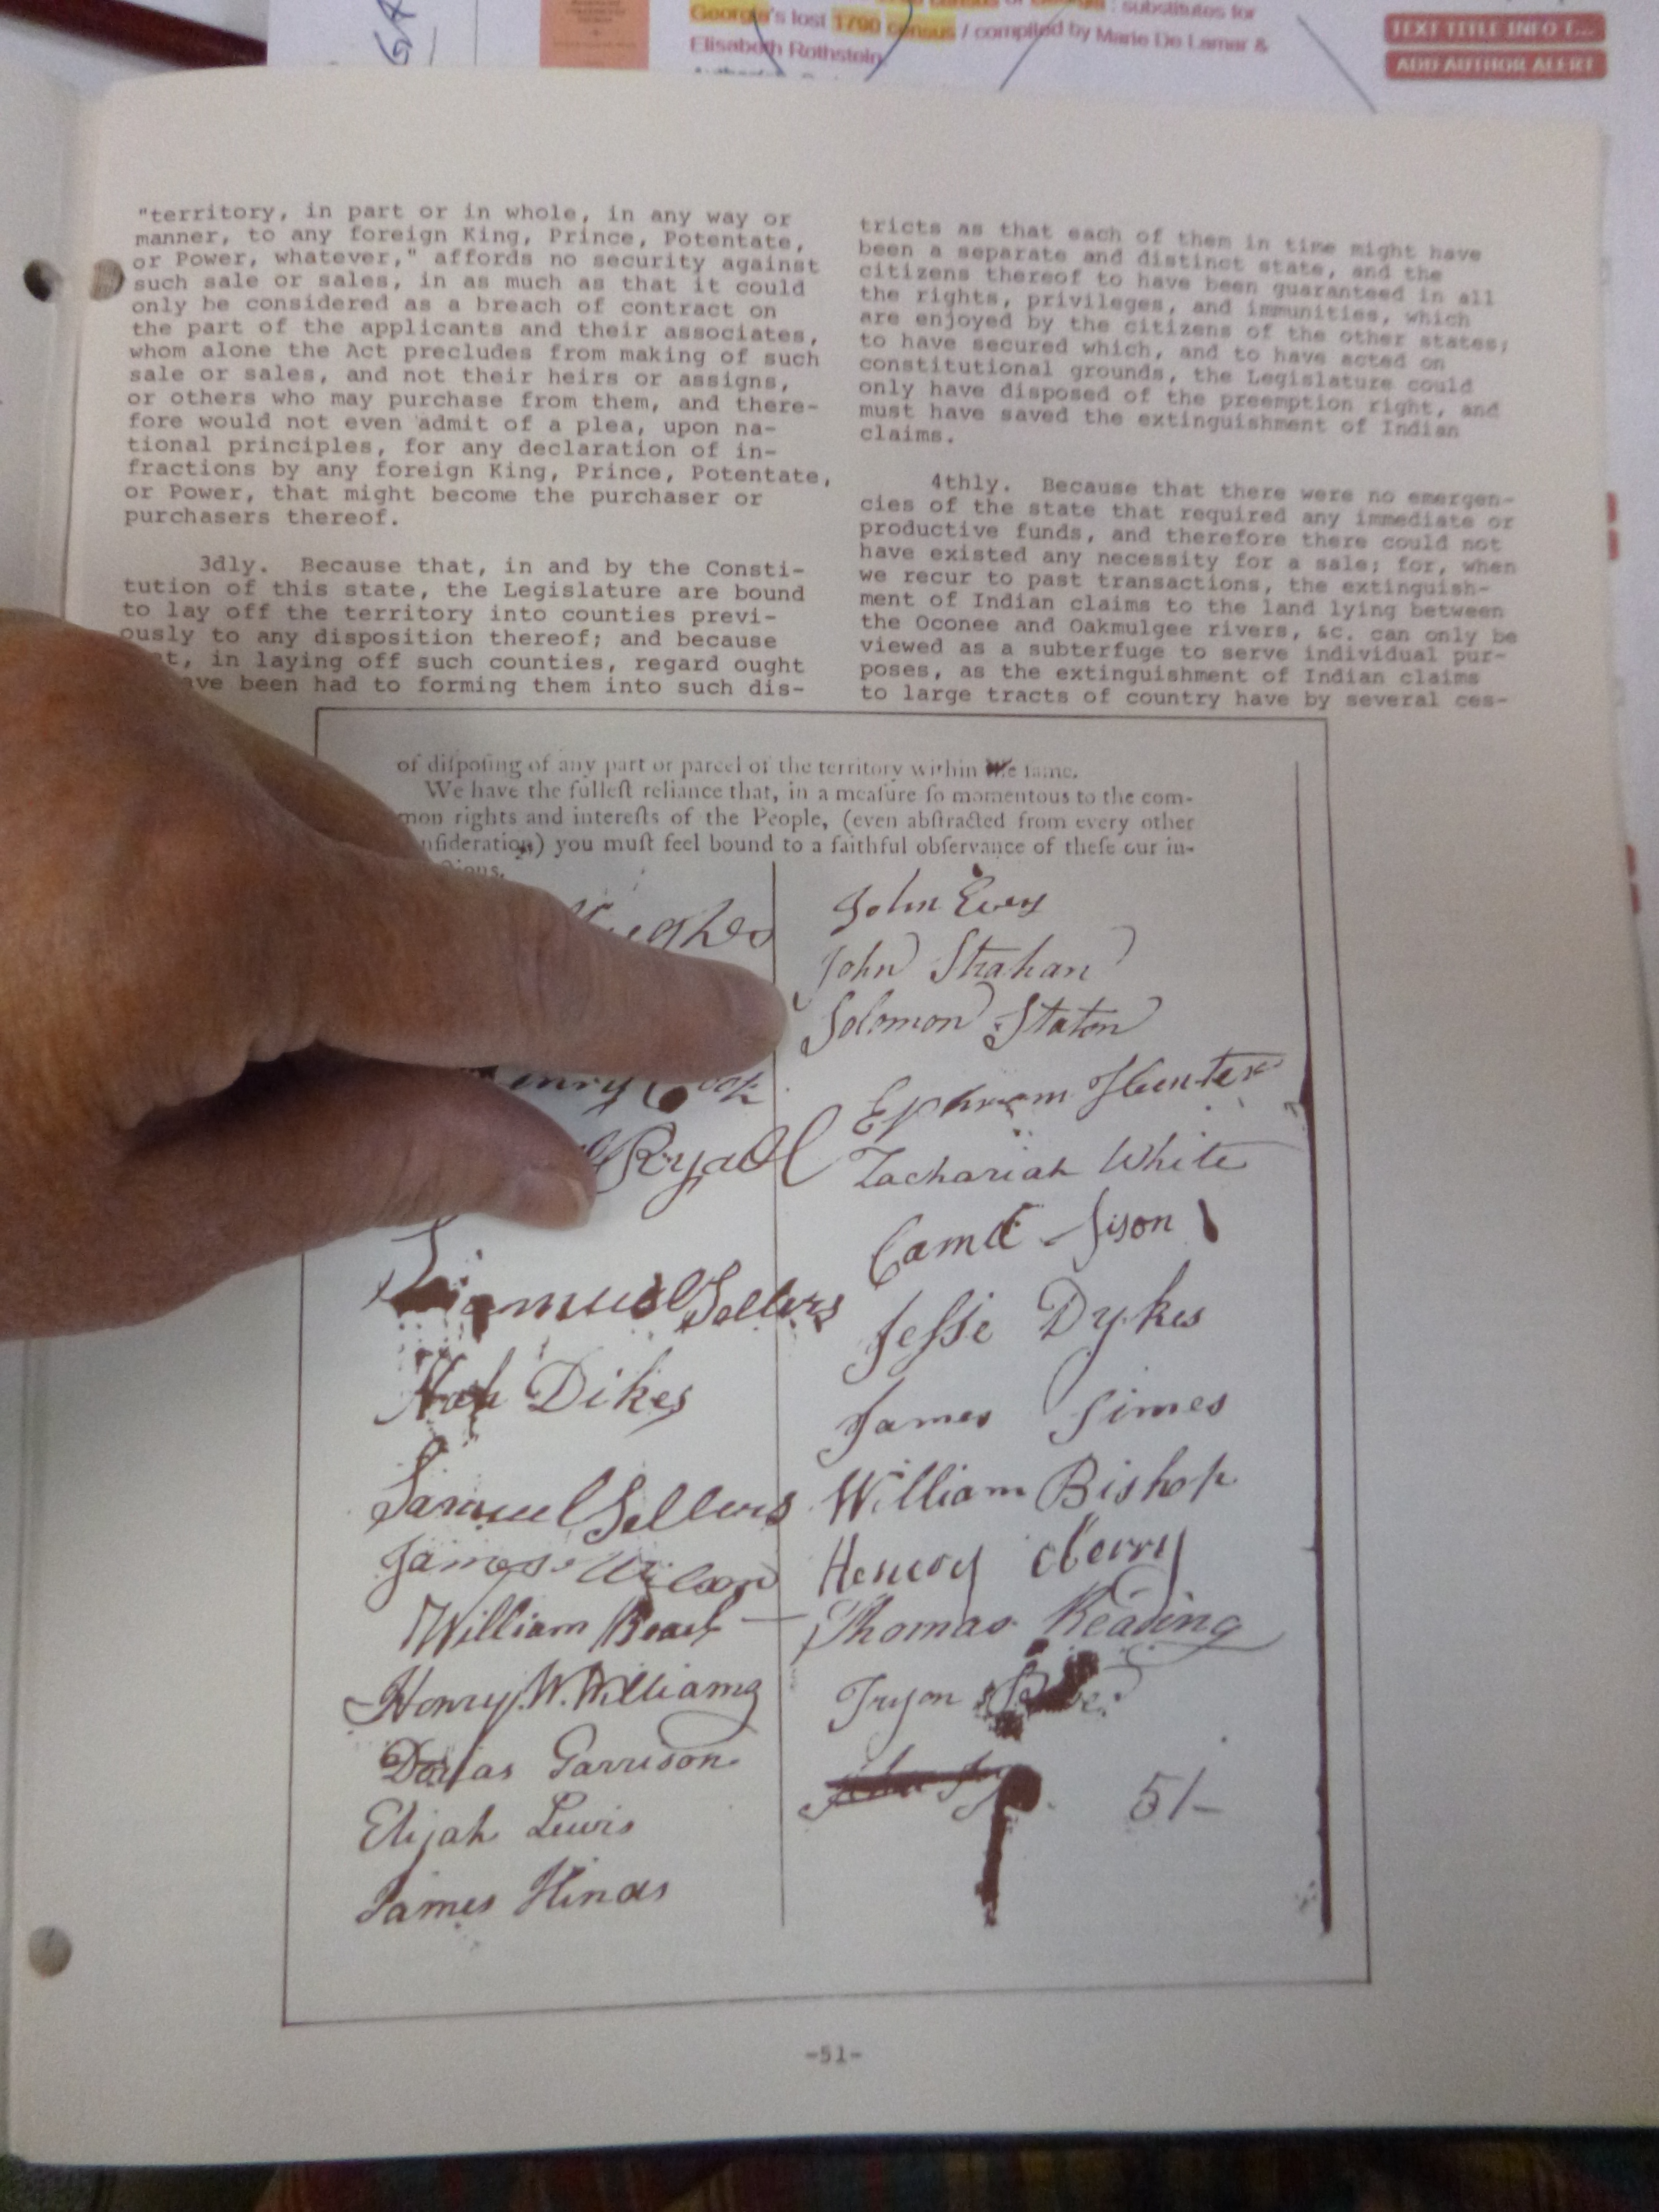 GA
Georgia's lost 1790 census / compiled by Marie De Lamar &
Elisabeth Rothstein
TEXT TITLE INFO T...
ADD AUTHOR ALERT
"territory, in part or in whole, in any way or
manner, to any foreign King, Prince, Potentate,
or Power, whatever," affords no security against
such sale or sales, in as much as that it could
only be considered as a breach of contract on
the part of the applicants and their associates,
whom alone the Act precludes from making of such
sale or sales, and not their heirs or assigns,
or others who may purchase from them, and there-
fore would not even admit of a plea, upon na-
tional principles, for any declaration of in-
fractions by any foreign King, Prince, Potentate,
or Power, that might become the purchaser or
purchasers thereof.
3dly. Because that, in and by the Consti-
tution of this state, the Legislature are bound
to lay off the territory into counties previ-
ously to any disposition thereof; and because
in laying off such counties, regard ought
have been had to forming them into such dis-
tricts as that each of them in time might have
been a separate and distinct state, and the
citizens thereof to have been guaranteed in all
the rights, privileges, and immunities, which
are enjoyed by the citizens of the other states;
to have secured which, and to have acted on
constitutional grounds, the Legislature could
only have disposed of the preemption right, and
must have saved the extinguishment of Indian
claims.
4thly. Because that there were no emergen-
cies of the state that required any immediate or
productive funds, and therefore there could not
have existed any necessity for a sale; for, when
we recur to past transactions, the extinguish-
ment of Indian claims to the land lying between
the Oconee and Oakmulgee rivers, &c. can only be
viewed as a subterfuge to serve individual pur-
poses, as the extinguishment of Indian claims
to large tracts of country have by several ces-
of diſpoſing of any part or parcel of the territory within the ſame.
We have the fulleſt reliance that, in a meaſure ſo momentous to the com-
mon rights and intereſts of the People, (even abſtracted from every other
conſideration) you muſt feel bound to a faithful obſervance of theſe our in-
Hughes
Henry Cook
Ryall
Samuel Sellers
Dikes
Samuel Sellers
James Wilson
William
Henry W. Williams
Garrison
Elijah Lewis
James Hinds
John
John Strahan
Solomon Staton
Ephraim Hunter
Zachariah White
Sison
Jeſse Dykes
James Simes
William Bishop
Cherry
Thomas Reading
Tryon
51
-51-